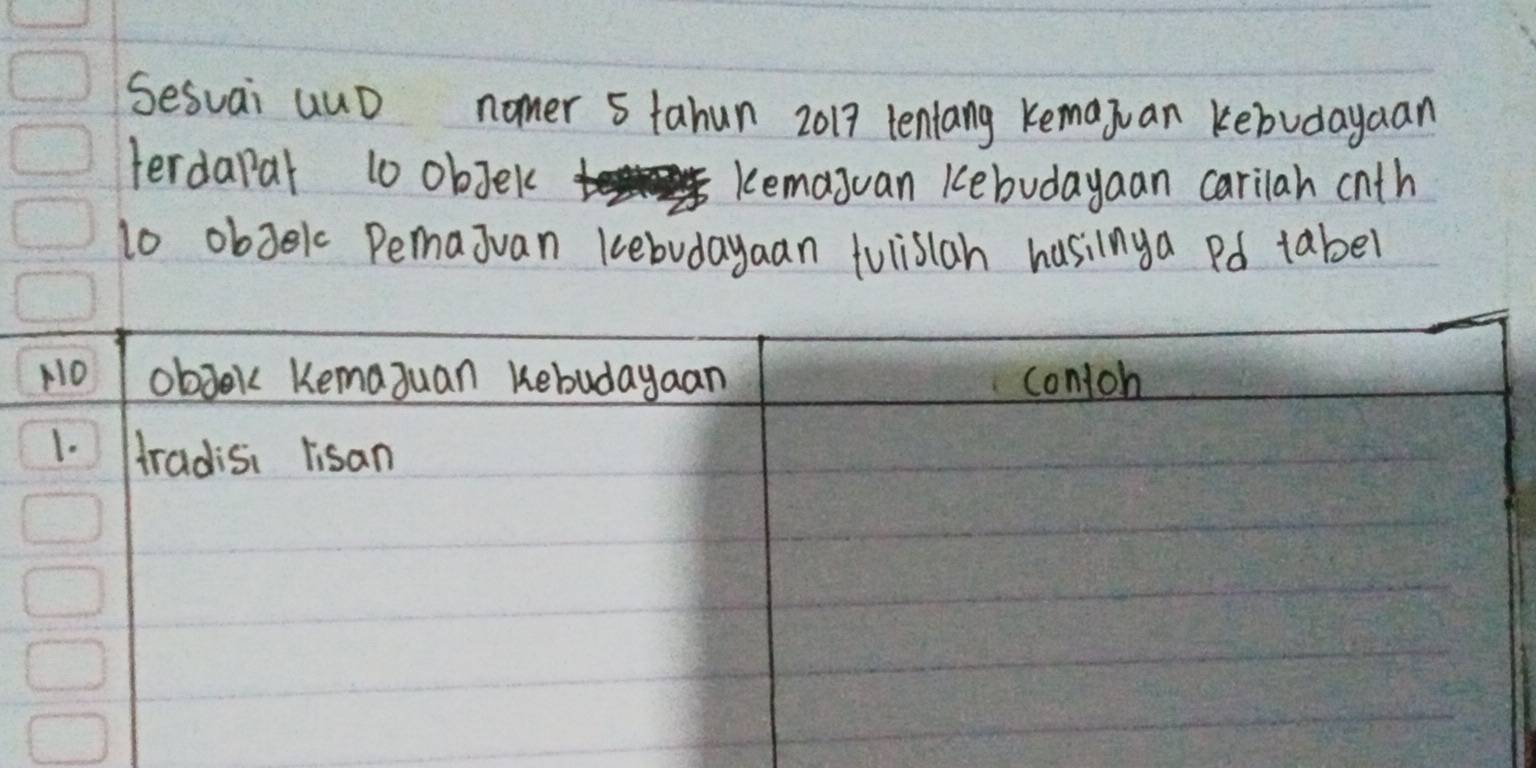 Sesuai UUD nomer 5 tahun 2017 tentang kemajuan kebudayaan
terdapat 10 objek kemajuan kebudayaan carilah cnth
10 objek Pemajuan kebudayaan tulislah hasilnya pd tabel
NO objek kemajuan kebudayaan contoh
1. tradisi lisan